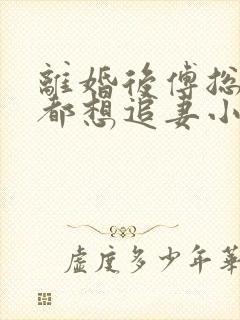 離婚後傅總
都想追妻小
虛度多少年華